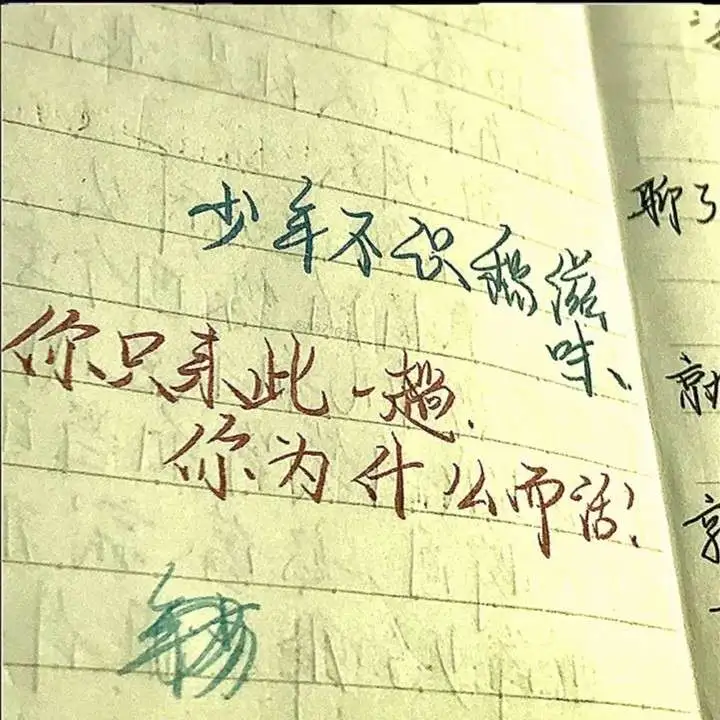 少年不识愁滋味、
你只来此一趟.
你为什么而活.
聊了
就